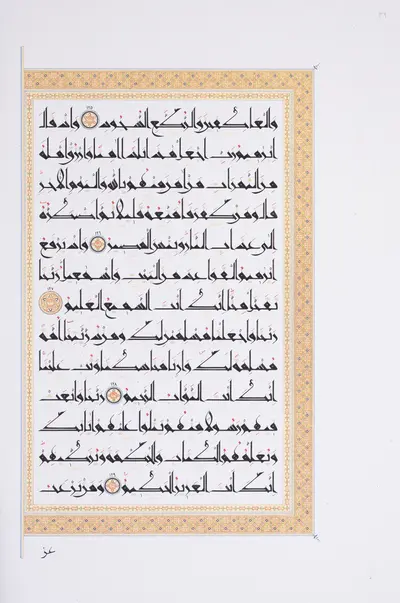 والعاكفين والركع السجود ١٢٥ واذ قال
ابرهيم رب اجعل هذا بلدا امنا وارزق اهله
من الثمرات من امن منهم بالله واليوم الاخر
قال ومن كفر فامتعه قليلا ثم اضطره
الى عذاب النار وبئس المصير ١٢٦ واذ يرفع
ابرهيم القواعد من البيت واسمعيل ربنا
تقبل منا انك انت السميع العليم ١٢٧
ربنا واجعلنا مسلمين لك ومن ذريتنا امة
مسلمة لك وارنا مناسكنا وتب علينا
انك انت التواب الرحيم ١٢٨ ربنا وابعث
فيهم رسولا منهم يتلوا عليهم اياتك
ويعلمهم الكتاب والحكمة ويزكيهم
انك انت العزيز الحكيم ١٢٩ ومن يرغب عن
عن